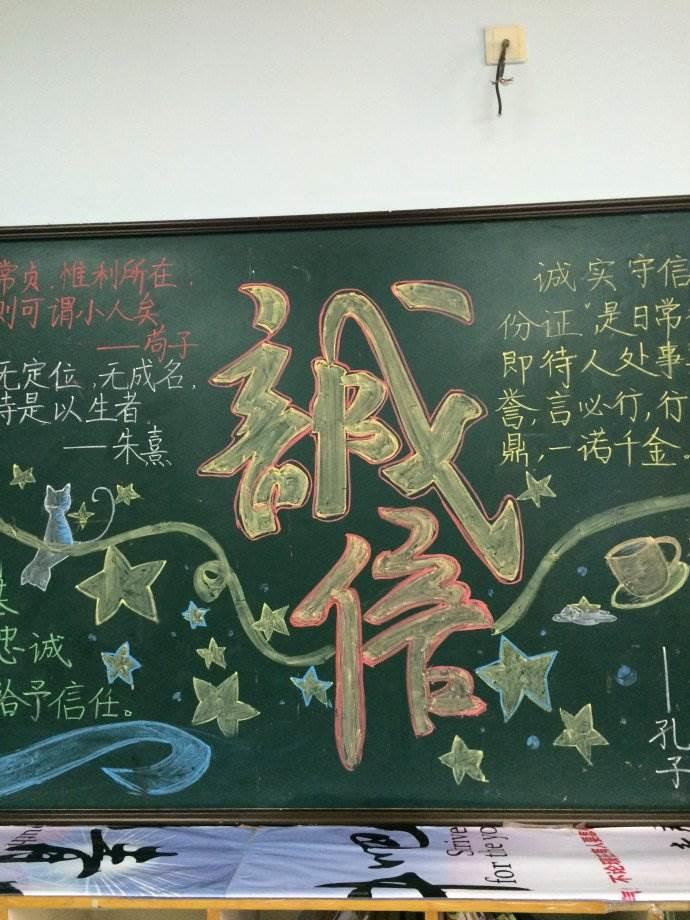 常贞，惟利所在，
则可谓小人矣
——荀子
无定位，无成名，
恃是以生者
——朱熹
忠诚
给予信任。
誠
信
诚实守信
份证"是日常
即待人处事
誉，言必行，行
鼎，一诺千金。
——孔子
Strive
for the yo